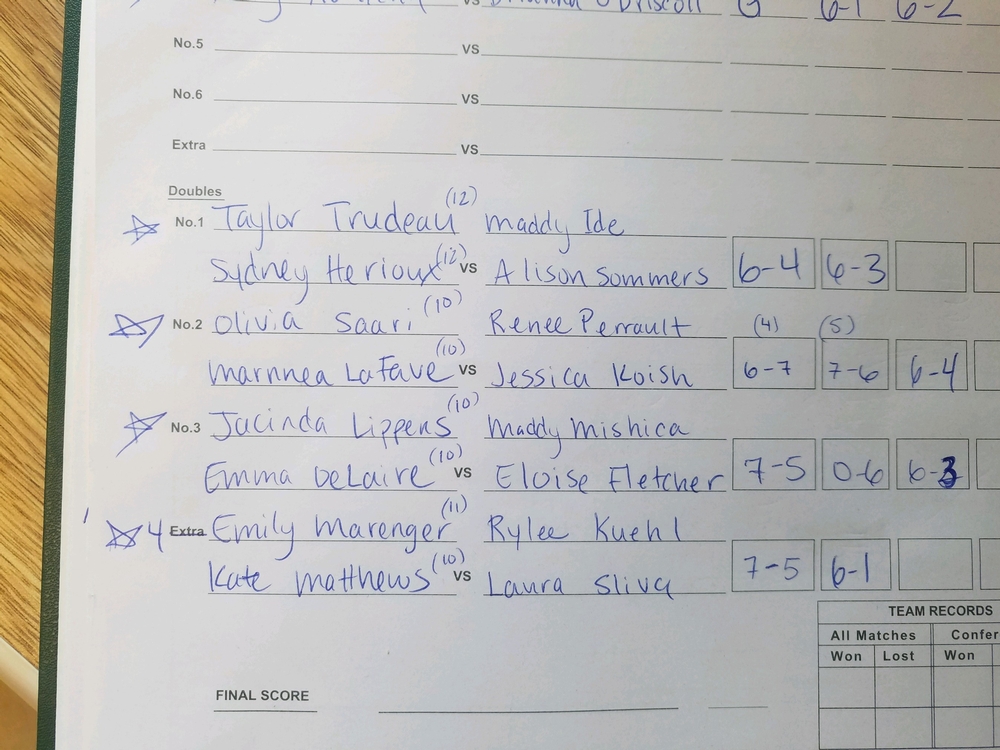 vs Brianna O'Driscoll G 6-1 6-2
No.5 VS
No.6 VS
Extra VS
Doubles
No.1 Taylor Trudeau (12) Maddy Ide
Sydney Herioux (12) VS Alison Sommers 6-4 6-3
No.2 Olivia Saari (10) Renee Perrault (4) (5)
Marnnea LaFave (10) VS Jessica Koish 6-7 7-6 6-4
No.3 Jacinda Lippens (10) Maddy Mishica
Emma DeLaire (10) VS Eloise Fletcher 7-5 0-6 6-3
4 Extra Emily Marenger (11) Rylee Kuehl
Kate Matthews (10) VS Laura Sliva 7-5 6-1
TEAM RECORDS
All Matches Confer
Won Lost Won
FINAL SCORE